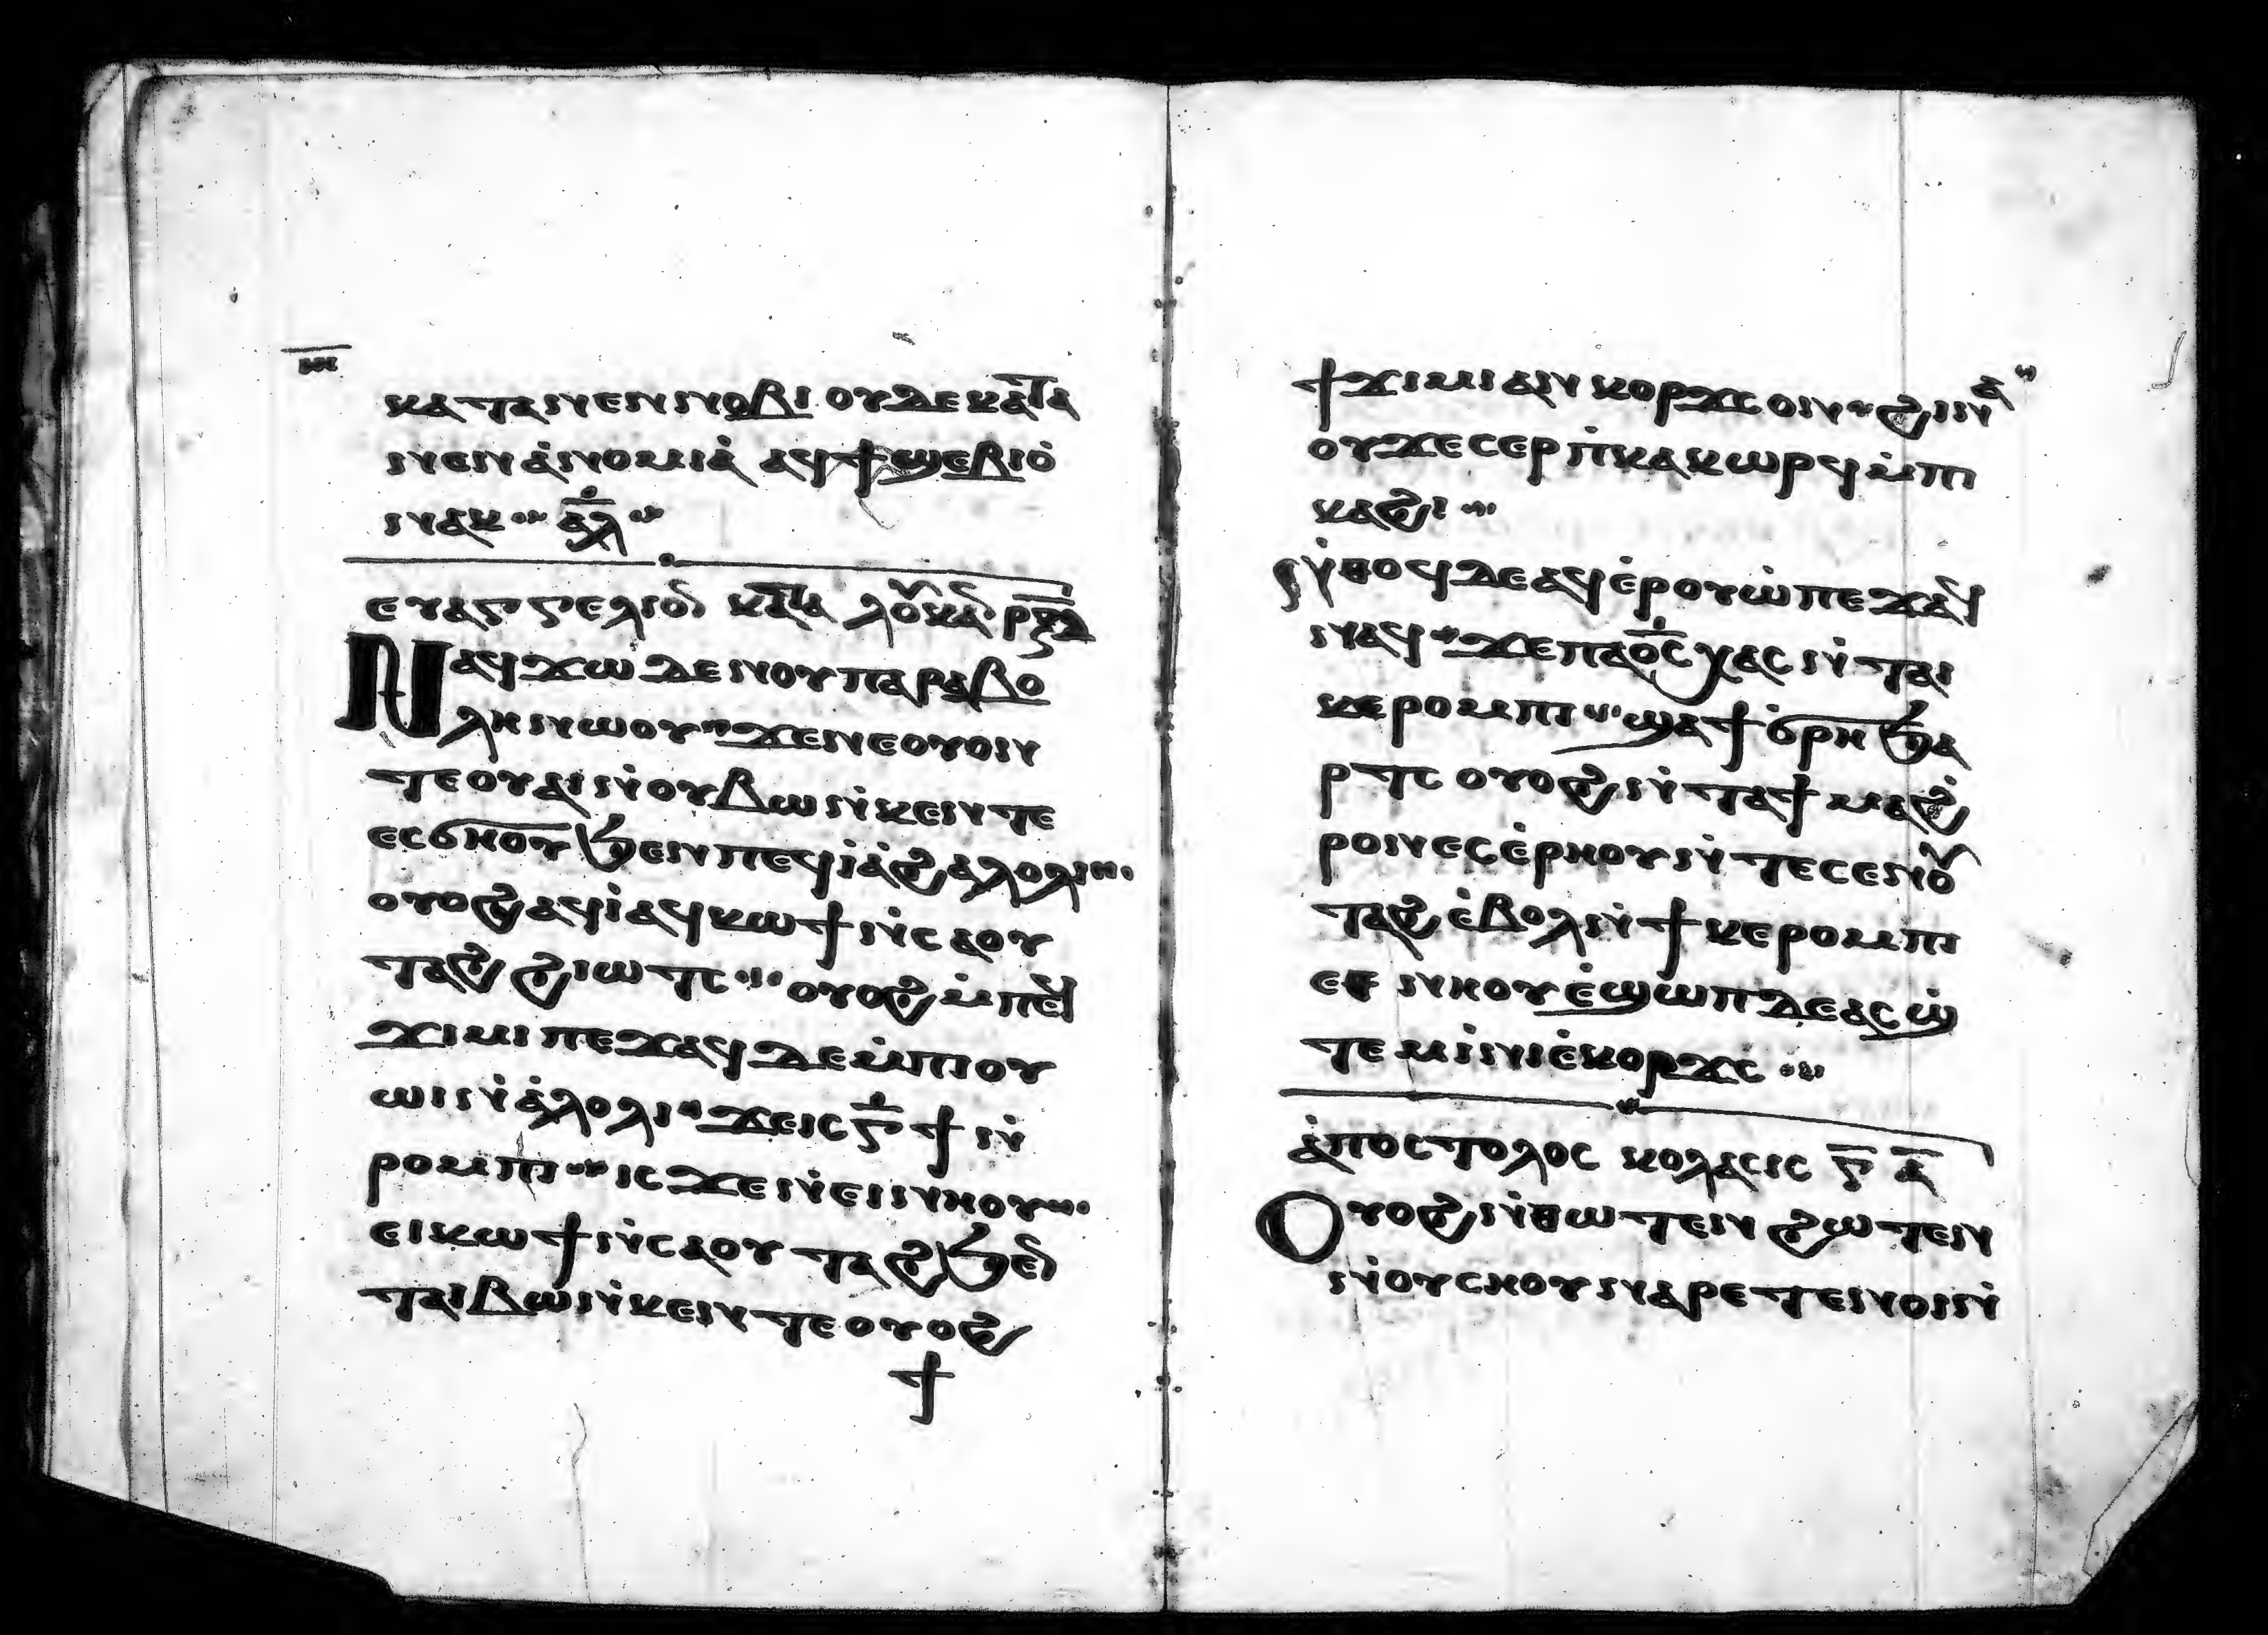 ⲏ
ⲕⲁⲧⲁⲛⲉⲛⲛⲟⲃⲓ ⲟⲩⲇⲉ ⲕⲁⲧⲁ
ⲛⲉⲛⲁ̀ⲛⲟⲙⲓⲁ̀ ⲁϥϯϣⲉⲃⲓⲟ̀
ⲛⲁⲕ ⲁ̅ⲗ̅
ⲉⲩⲁⲅⲅⲉⲗⲓⲟⲛ ⲕⲁⲧⲁ ⲗⲟⲩⲕⲁⲛ
Ⲛⲁϥϫⲱ ⲇⲉ ⲛⲟⲩⲡⲁⲣⲁⲃⲟ
ⲗⲏ ⲛⲱⲟⲩ ϫⲉⲛⲉⲟⲩⲟⲛ
ⲧⲉ ⲟⲩⲁⲓ ⲛ̀ⲟⲩⲃⲱ ⲛ̀ⲕⲉⲛⲧⲉ
ⲉⲥϭⲏⲟⲩ ϧⲉⲛ ⲡⲉϥⲓⲁ̀ϩⲁⲗⲟⲗⲓ
ⲟⲩⲟϩ ⲁϥⲓ̀ ⲁϥⲕⲱϯ ⲛ̀ⲥⲁⲟⲩ
ⲧⲁϩ ϩⲓⲱⲧⲥ ⲟⲩⲟϩ ⲙ̀ⲡⲉϥ
ϫⲓⲙⲓ ⲡⲉϫⲁϥ ⲇⲉ ⲙ̀ⲡⲓⲟⲩ
ⲱⲓ ⲛ̀ⲁ̀ⲗⲟⲗⲓ ϫⲉⲓⲥ ⲅ̅ ϯ ⲛ̀
ⲣⲟⲙⲡⲓ ⲓⲥϫⲉⲛ ⲉⲓⲛⲏⲟⲩ
ⲉⲓⲕⲱϯ ⲛ̀ⲥⲁⲟⲩⲧⲁϩ ϧⲉⲛ
ⲧⲁⲓⲃⲱ ⲛ̀ⲕⲉⲛⲧⲉ ⲟⲩⲟϩ
ϯ
ϯϫⲓⲙⲓ ⲁⲛ ⲕⲟⲣϫⲥ ⲟⲩⲛ ϩⲓⲛⲁ
ⲟⲩϫⲉ ⲥⲉⲣⲡ̀ⲕⲁⲕⲱⲣϥ ⲙ̀ⲡⲓ
ⲕⲁϩⲓ
ⲛ̀ⲑⲟϥ ⲇⲉ ⲁϥⲉ̀ⲣⲟⲩⲱ̀ ⲡⲉϫⲁϥ
ⲛⲁϥ ϫⲉ ⲡⲁⲟ̅ⲥ̅ ⲭⲁⲥ ⲛ̀ⲧⲁⲓ
ⲕⲉⲣⲟⲙⲡⲓ ϣⲁϯϭⲣⲏ ϧⲁ
ⲣⲧⲥ ⲟⲩⲟϩ ⲛ̀ⲧⲁϯⲙⲁϩ
ⲣⲟⲛ ⲉⲥⲉ̀ⲣⲏⲟⲩ ⲛ̀ⲧⲉⲥⲉⲛⲟⲩ
ⲧⲁϩ ⲉ̀ⲃⲟⲗ ⲛ̀ϯⲕⲉⲣⲟⲙⲡⲓ
ⲉⲑⲛⲏⲟⲩ ⲉ̀ϣⲱⲡ ⲇⲉ ⲁⲥϣ̀
ⲧⲉⲙⲓ̀ⲛⲓ ⲉ̀ⲕⲟⲣϫⲥ
ⲁ̀ⲡⲟⲥⲧⲟⲗⲟⲥ ⲕⲟⲗⲁⲥⲓⲥ ⲅ̅ ⲁ̅
Ⲟⲩⲟϩ ⲛ̀ⲑⲱⲧⲉⲛ ϩⲱⲧⲉⲛ
ⲛ̀ⲟⲩⲥⲏⲟⲩ ⲛⲁⲣⲉⲧⲉⲛⲟⲓ ⲛ̀